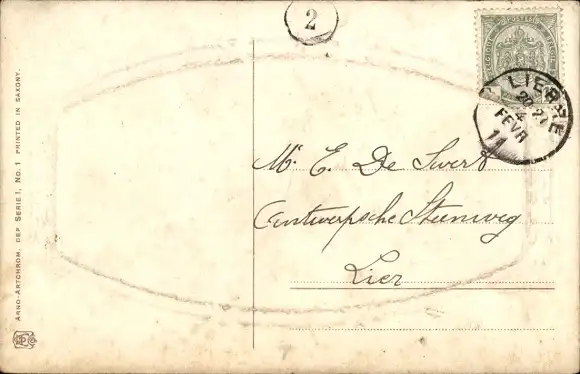 2
LIERRE
4
FEVR
11
Mr. E. De Swert
Antwerpsche Steenweg
Lier
ARNO-ARTCHROM, DEP. SERIE I, NO. 1 PRINTED IN SAXONY.